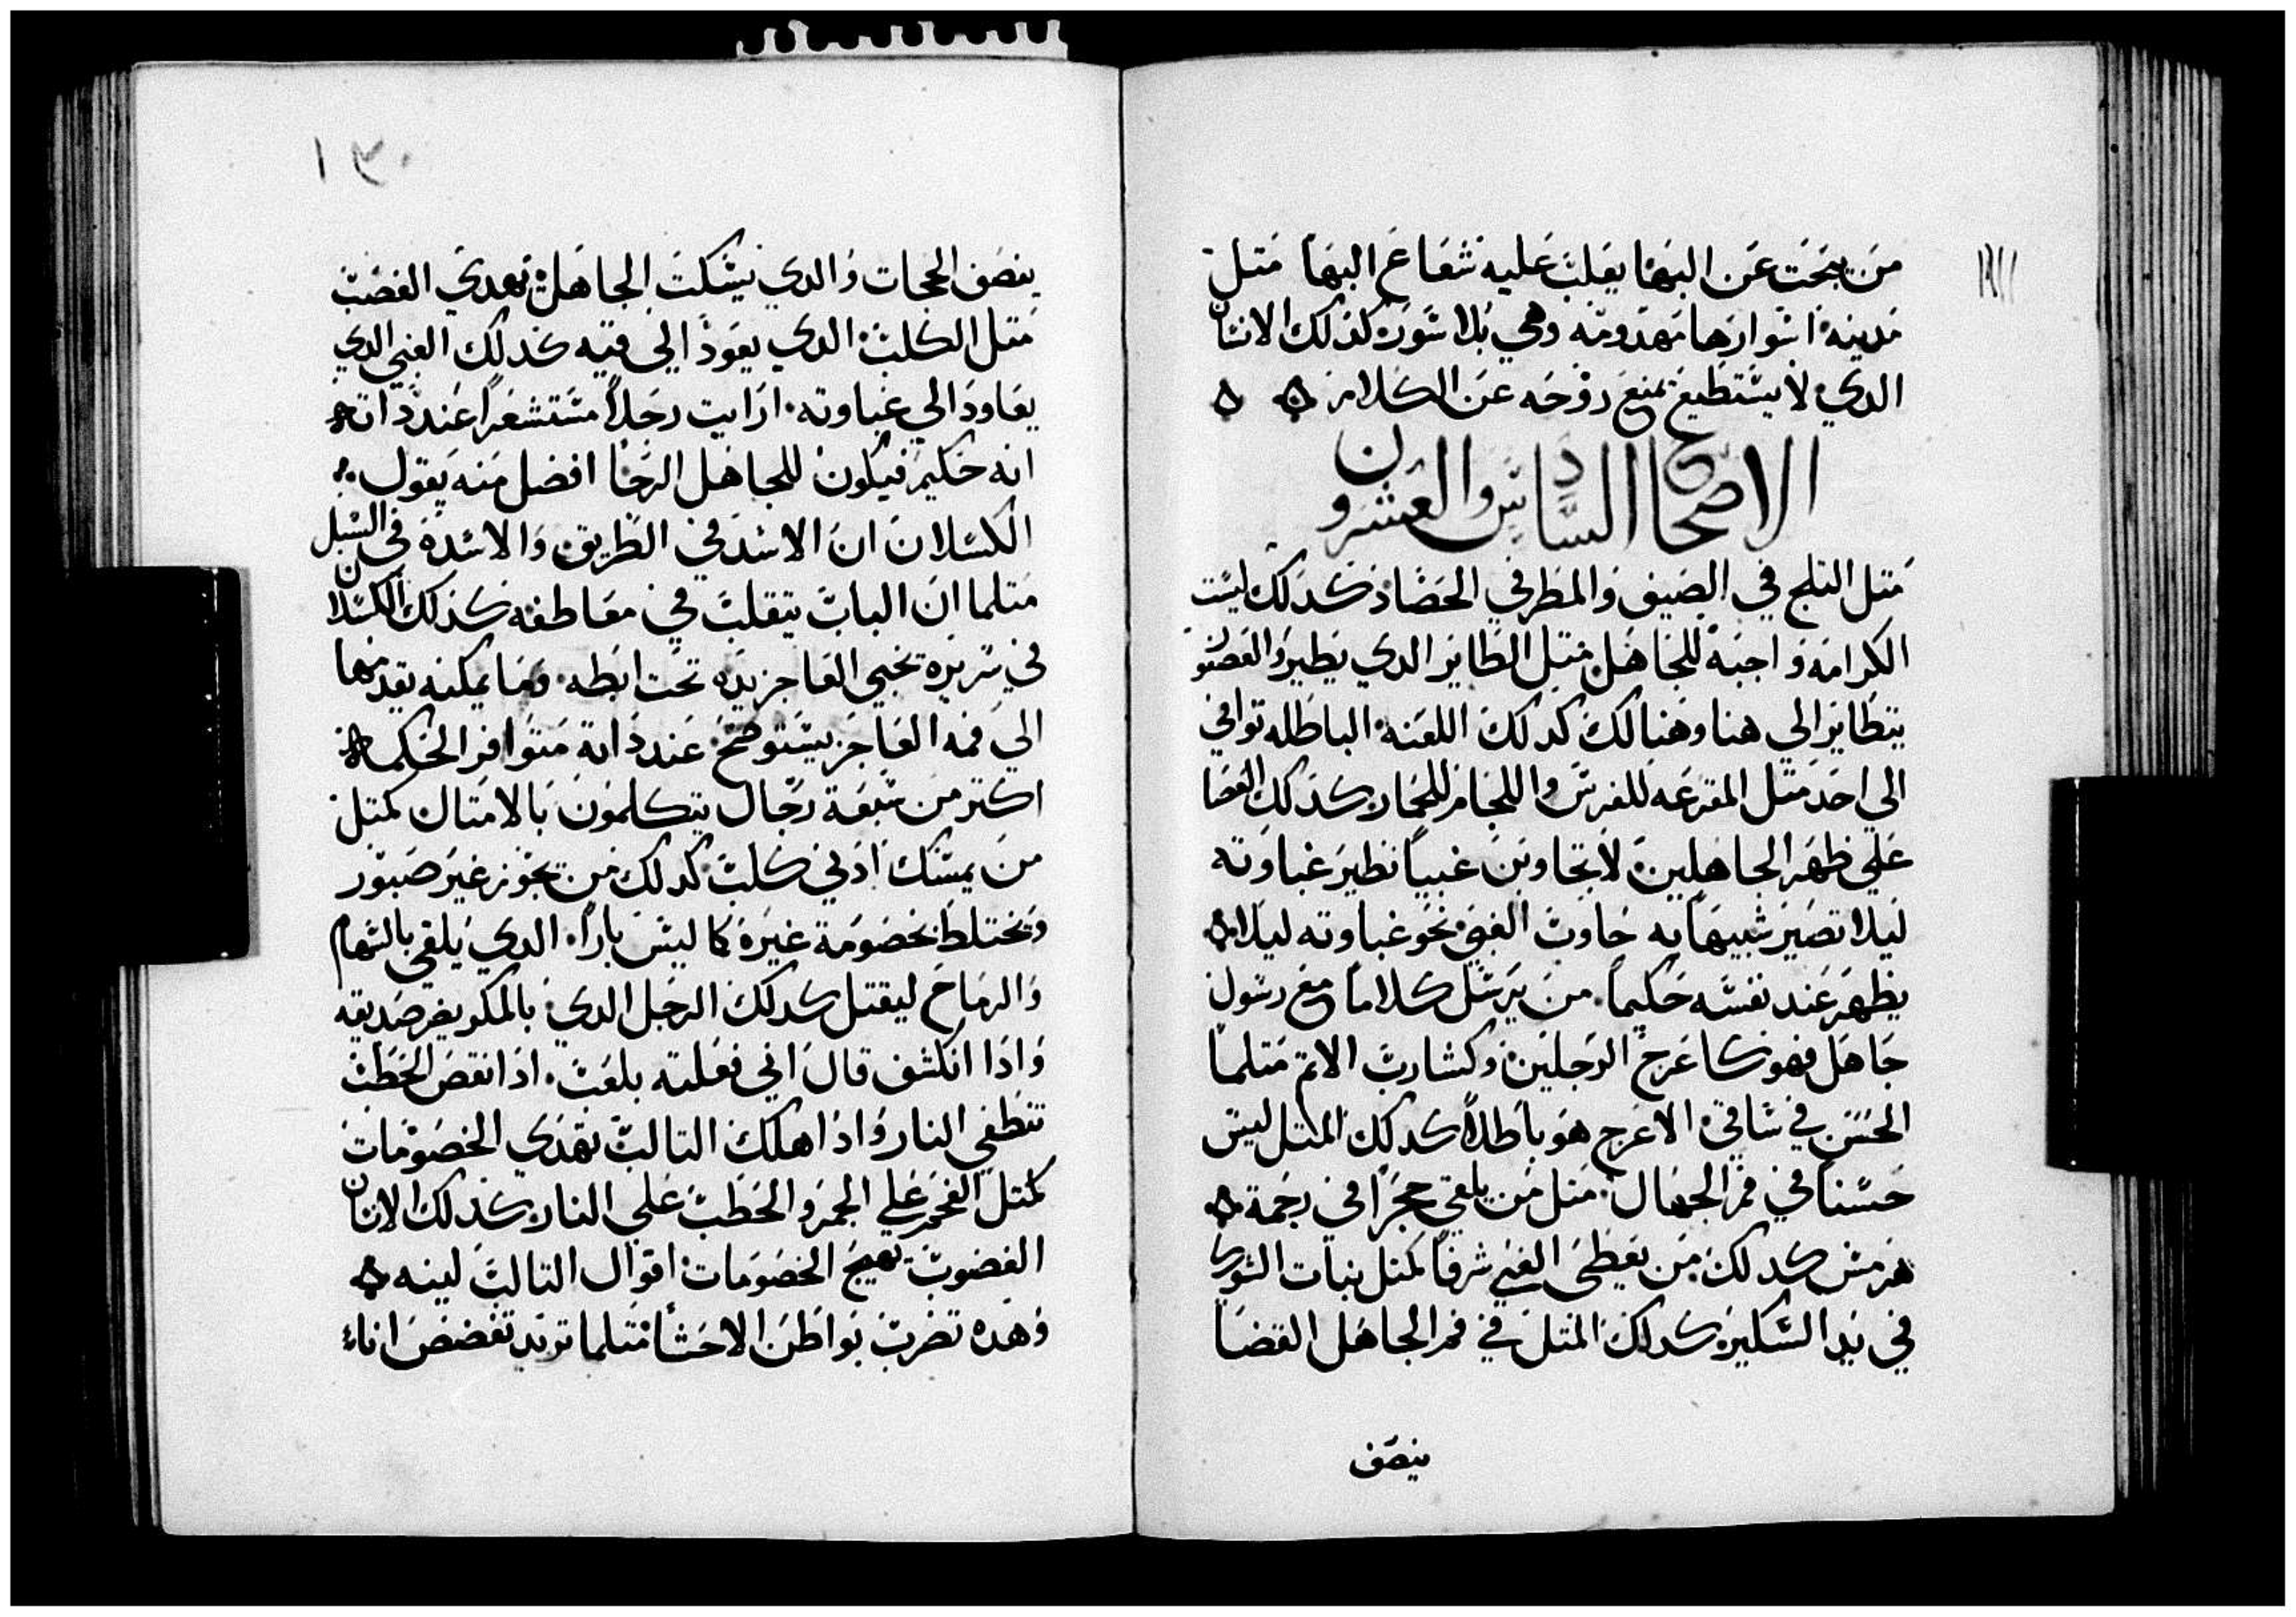 من يبحت عن البها يغلب عليه شعاع البها متل
مدينه اسوارها مهدومه وهي بلا سور كذلك الانسان
الدي لا يستطيع يمنع روحه عن الكلام
الاصحاح السادس والعشرون
متل التلج في الصيف والمطر في الحصاد كدلك ليست
الكرامه واجبه للجاهل متل الطاير الدي يطير والعصفور
يتطاير الي هنا وهنالك كدلك اللعنه الباطله توافي
الي احد متل المقرعه للفرس واللجام للحمار كدلك العصا
علي ظهر الجاهلين لا تجاوبن غبيا نظير غباوته
ليلا تصير شبيها به جاوب الغبي نحو غباوته ليلا
يظهر عند نفسه حكيما من يرسل كلاما مع رسول
جاهل فهو كاعرج الرجلين وكشارب الاتم متلما
الحسن في ساقي الاعرج هو باطلا كدلك المتل ليس
حسنا في فم الجهال متل من يلقي حجرا في رجمة
هرمس كدلك من يعطي الغبي شرفا كمتل نبات الشوك
في يد السكير كدلك المتل في فم الجاهل القضا
ينصف
١٣٠
ينصف الحجات والدي يسكت الجاهل يهدي الغضب
متل الكلب الدي يعود الي قيه كدلك الغبي الدي
يعاود الي غباوته ارايت رجلا مستشعرا عند داته
انه حكيم فيكون للجاهل الرجا افضل منه يقول
الكسلان ان الاسد في الطريق والاسدة في السبل
متلما ان الباب يتقلب في معاطفه كذلك الكسلان
في سريره تخبي العاجز يده تحت ابطه وما يمكنه يقدمها
الي فمه العاجز يستوضح عند داته متوافر الحكمة
اكتر من سبعة رجال يتكلمون بالامتال كمتل
من يمسك ادني كلب كدلك من يجوز غير صبور
ويختلط بخصومة غيره كما ليس بارا الدي يلقي بالسهام
والرماح ليقتل كدلك الرجل الدي بالمكر يضر صديقه
وادا انكشف قال اني فعلته بلعب ادا نقص الحطب
تنطفي النار وادا هلك التالب تهدي الخصومات
كمتل الفحم علي الجمر والحطب علي النار كدلك الانسان
الغضوب تهيج الخصومات اقوال التالب لينه
وهده تضرب بواطن الاحشا متلما تريد تفضض اناء